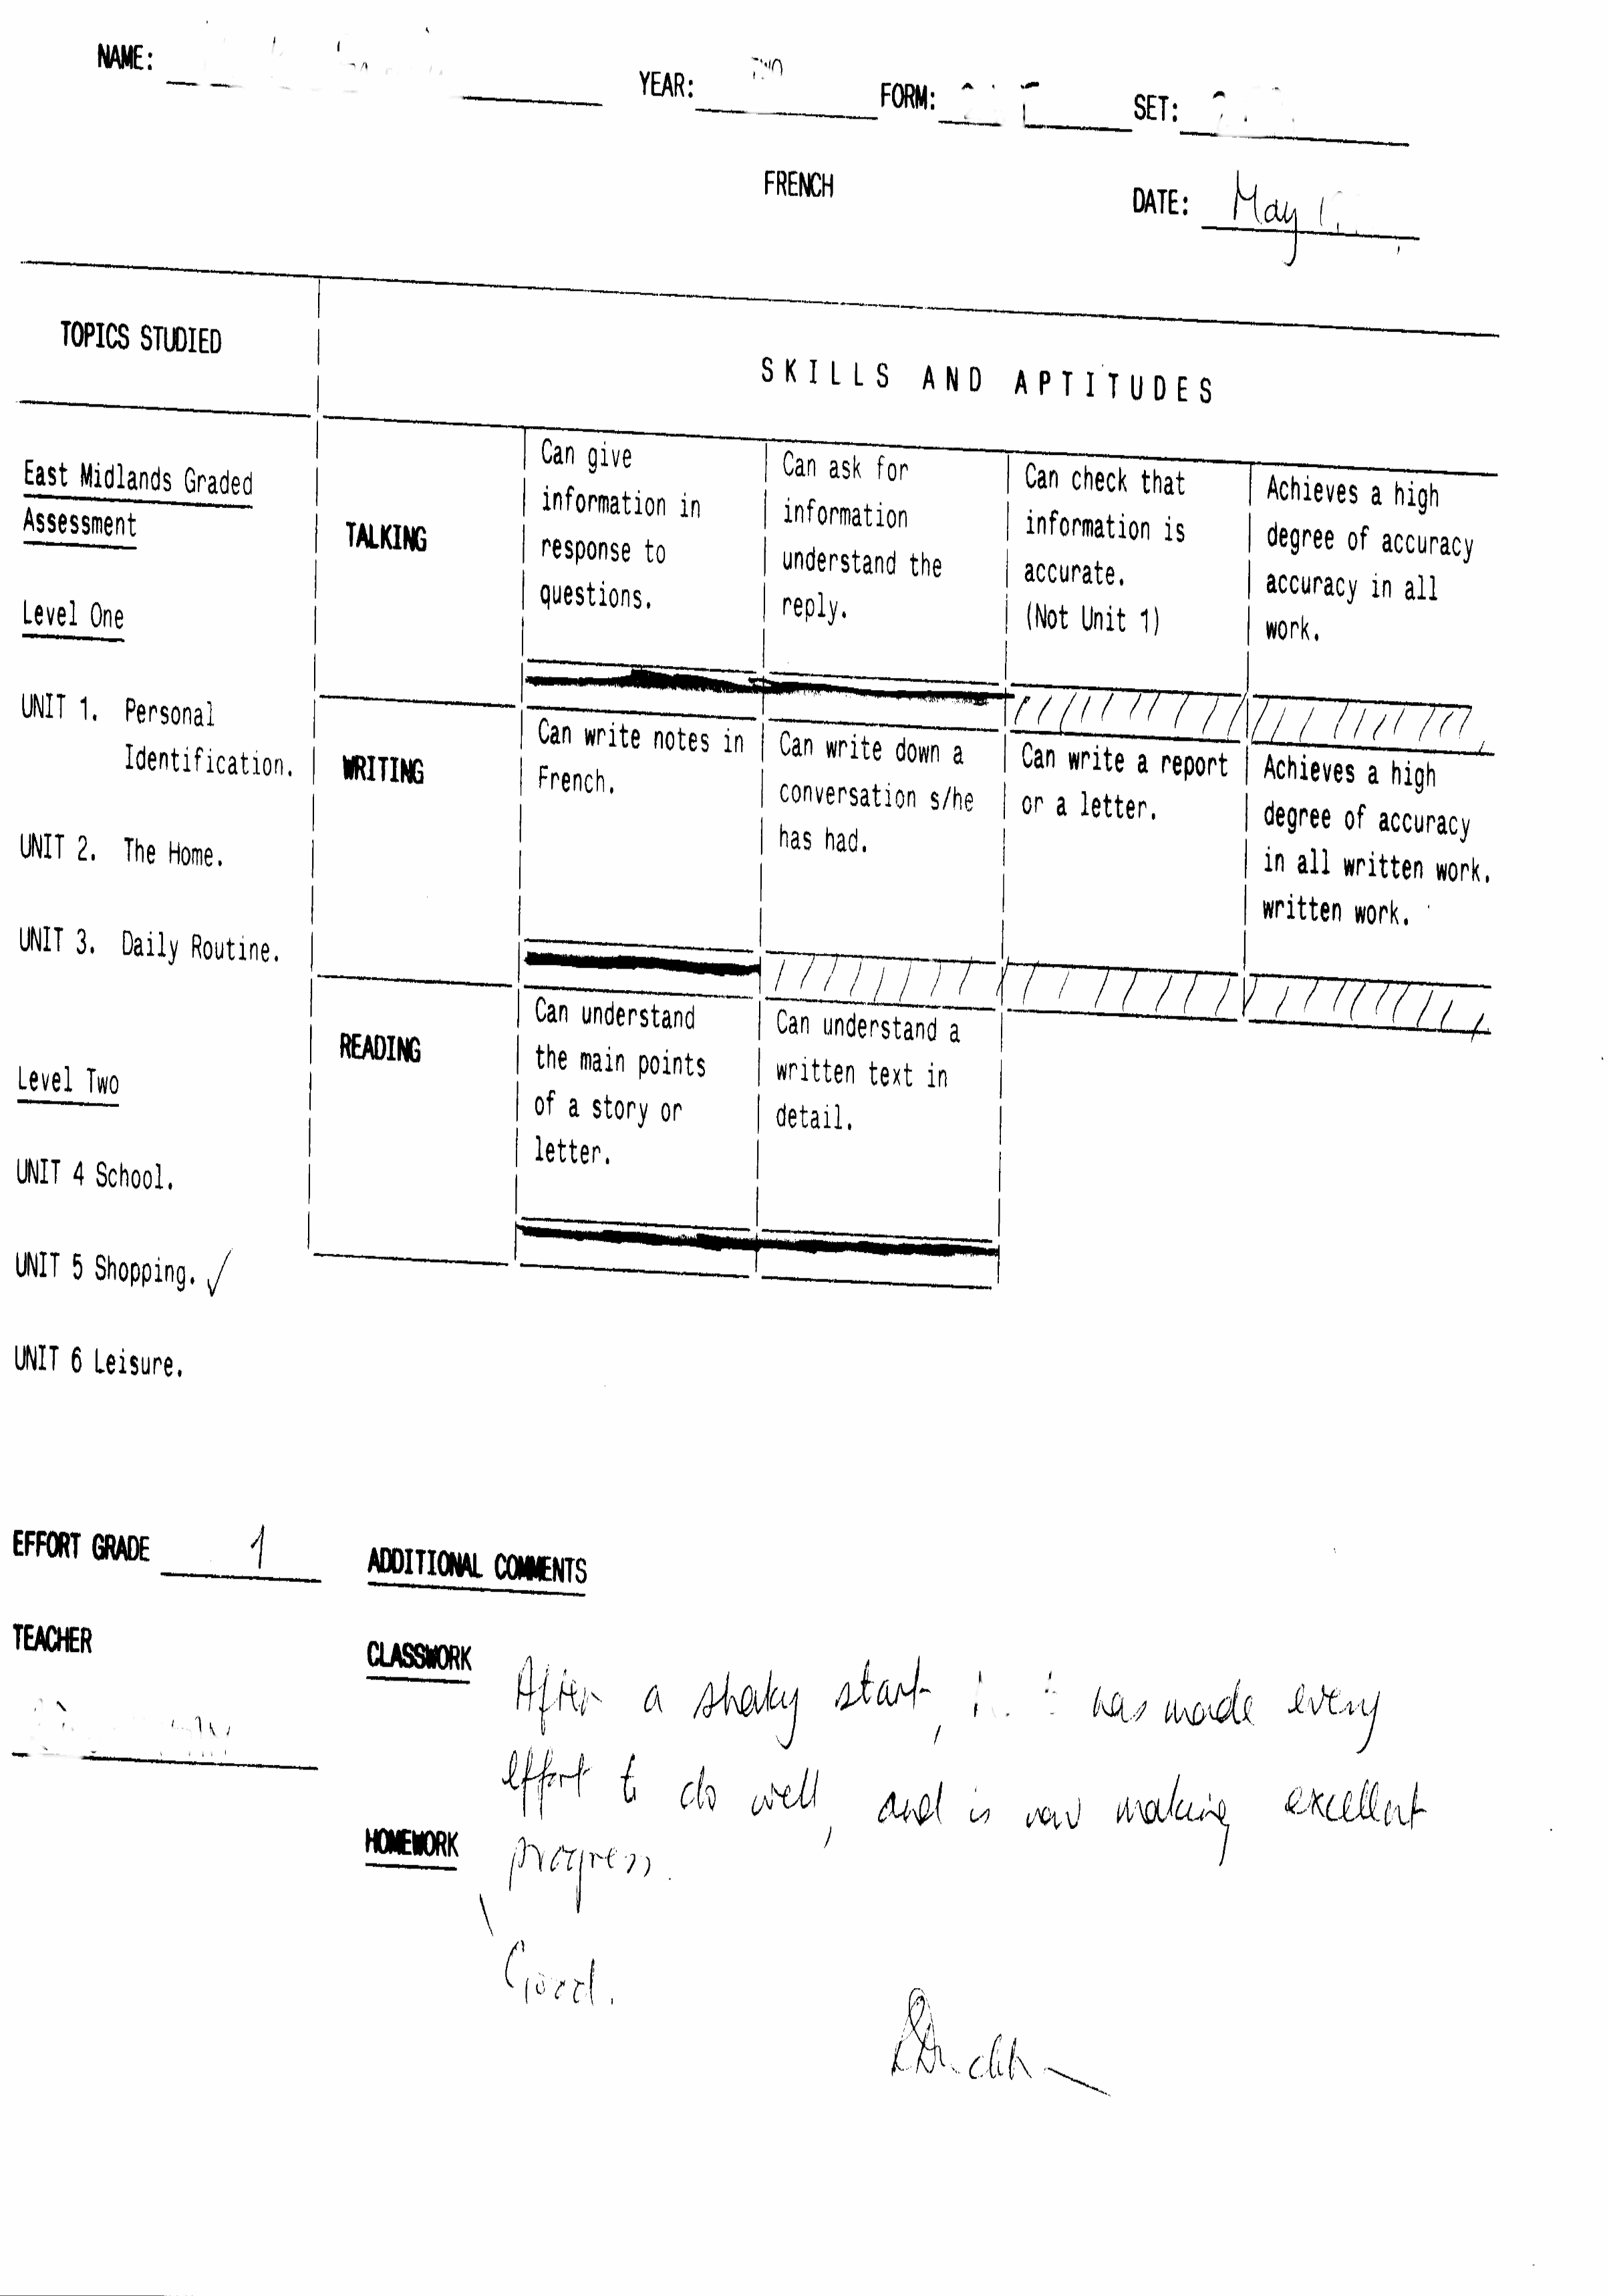 NAME:
YEAR: TWO
FORM:
SET:
FRENCH
DATE: May
TOPICS STUDIED
SKILLS AND APTITUDES
East Midlands Graded
Assessment
Level One
UNIT 1. Personal
Identification.
UNIT 2. The Home.
UNIT 3. Daily Routine.
Level Two
UNIT 4 School.
UNIT 5 Shopping. ✓
UNIT 6 Leisure.
TALKING
Can give
information in
response to
questions.
Can ask for
information
understand the
reply.
Can check that
information is
accurate.
(Not Unit 1)
Achieves a high
degree of accuracy
accuracy in all
work.
WRITING
Can write notes in
French.
Can write down a
conversation s/he
has had.
Can write a report
or a letter.
Achieves a high
degree of accuracy
in all written work.
written work.
READING
Can understand
the main points
of a story or
letter.
Can understand a
written text in
detail.
EFFORT GRADE 1
ADDITIONAL COMMENTS
TEACHER
CLASSWORK
After a shaky start, has made every
effort to do well, and is now making excellent
progress.
HOMEWORK
Good.